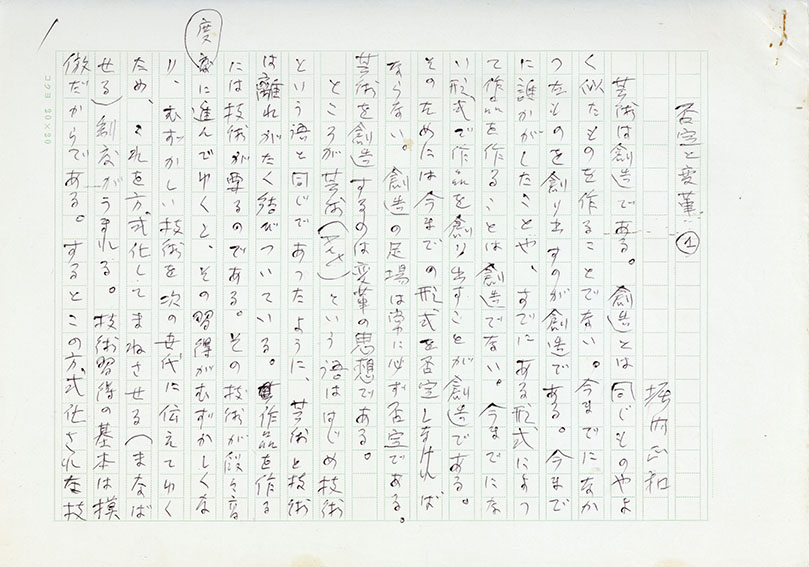 否定と変革 ①
堀内正和
芸術は創造である。創造とは同じものやよ
く似たものを作ることでない。今までになか
つたものを創り出すのが創造である。今まで
に誰かがしたことや、すでにある形式によつ
て作品を作ることは創造でない。今までにな
い形式で作品を創り出すことが創造である。
そのためには今までの形式を否定しなければ
ならない。創造の足場は常に必ず否定である。
芸術を創造するのは変革の思想である。
ところが芸術()という語ははじめ技術
という語と同じであつたように、芸術と技術
は離れがたく結びついている。作品を作る
には技術が要るのである。その技術が段々高
度に進んでゆくと、その習得がむずかしくな
り、むずかしい技術を次の世代に伝えてゆく
ため、これを方式化してまねさせる(まなば
せる)制度がうまれる。技術習得の基本は模
倣だからである。するとこの方式化された技
コクヨ 20×20